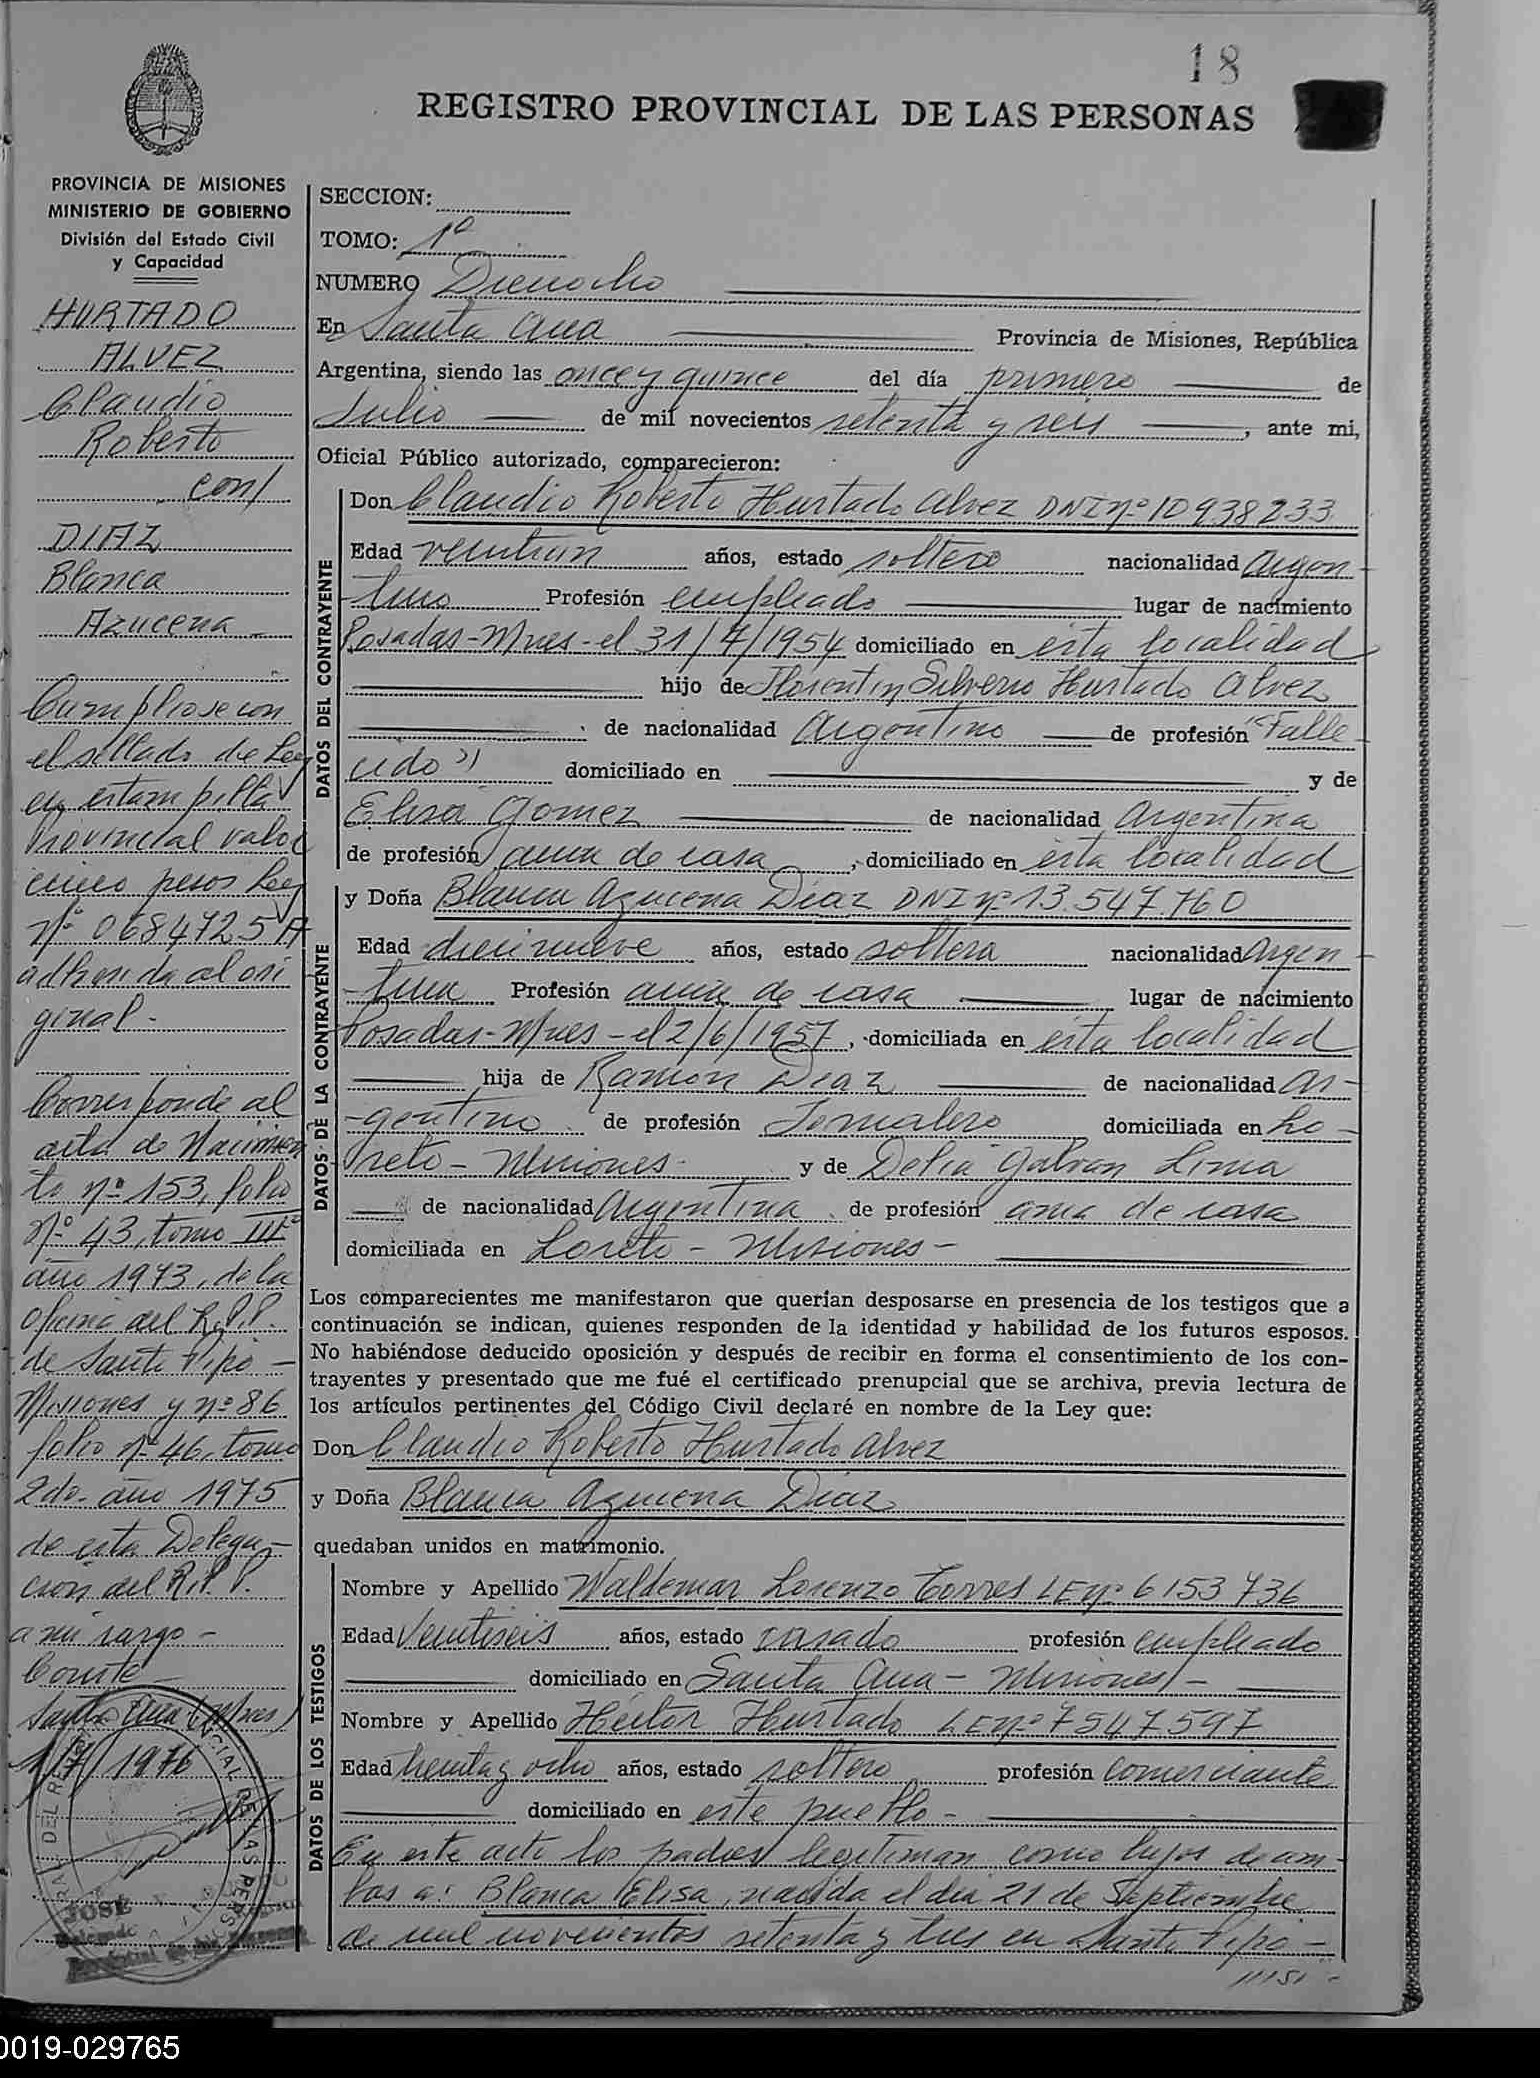 18
REGISTRO PROVINCIAL DE LAS PERSONAS
PROVINCIA DE MISIONES
MINISTERIO DE GOBIERNO
División del Estado Civil
y Capacidad
HURTADO
ALVEZ
Claudio
Roberto
con/
DIAZ
Blanca
Azucena -
Cumpliose con
el sellado de Ley
en estampilla
Provincial valor
cinco pesos Ley
nº 0684725 A
adherida al ori
ginal.-
Corresponde al
acta de Nacimien
to nº 153, folio
nº 43, tomo IIIº
año 1973, de la
oficina del R.P.P.
de Santo Pipó -
Misiones y nº 86
folio nº 46, tomo
2do. año 1975
de esta Delega-
ción del R.P.P.
a mi cargo -
Conste
Santa Ana (Mnes)
1/7/1976
JOSE
SECCION:
TOMO: 1º
NUMERO Dieciocho
En Santa Ana Provincia de Misiones, República
Argentina, siendo las once y quince del día primero de
Julio de mil novecientos setenta y seis, ante mi,
Oficial Público autorizado, comparecieron:
DATOS DEL CONTRAYENTE
Don Claudio Roberto Hurtado Alvez DNI nº 10938233
Edad veintiun años, estado soltero nacionalidad Argen-
tino Profesión empleado lugar de nacimiento
Posadas-Mnes-el 31/7/1954 domiciliado en esta localidad
hijo de Florentin Silverio Hurtado Alvez
de nacionalidad Argentino de profesión "Falle-
cido" domiciliado en y de
Elisa Gomez de nacionalidad Argentina
de profesión ama de casa, domiciliado en esta localidad
DATOS DE LA CONTRAYENTE
y Doña Blanca Azucena Diaz DNI nº 13.547.760
Edad diecinueve años, estado soltera nacionalidad Argen-
tina Profesión ama de casa lugar de nacimiento
Posadas-Mnes-el 2/6/1957, domiciliada en esta localidad
hija de Ramon Diaz de nacionalidad Ar-
gentino de profesión Jornalero domiciliada en Lo-
reto - Misiones- y de Delia Galvan Lima
de nacionalidad Argentina de profesión ama de casa
domiciliada en Loreto - Misiones -
Los comparecientes me manifestaron que querían desposarse en presencia de los testigos que a
continuación se indican, quienes responden de la identidad y habilidad de los futuros esposos.
No habiéndose deducido oposición y después de recibir en forma el consentimiento de los con-
trayentes y presentado que me fué el certificado prenupcial que se archiva, previa lectura de
los artículos pertinentes del Código Civil declaré en nombre de la Ley que:
Don Claudio Roberto Hurtado Alvez
y Doña Blanca Azucena Diaz
quedaban unidos en matrimonio.
DATOS DE LOS TESTIGOS
Nombre y Apellido Waldemar Lorenzo Torres LE nº 6153736
Edad Veintiseis años, estado casado profesión empleado
domiciliado en Santa Ana - Misiones -
Nombre y Apellido Hector Hurtado LE nº 7547597
Edad treinta y ocho años, estado soltero profesión comerciante
domiciliado en este pueblo -
En este acto los padres legitiman como hijos de am-
bos a: Blanca Elisa, nacida el dia 21 de Septiembre
de mil novecientos setenta y tres en Santo Pipó -
0019-029765